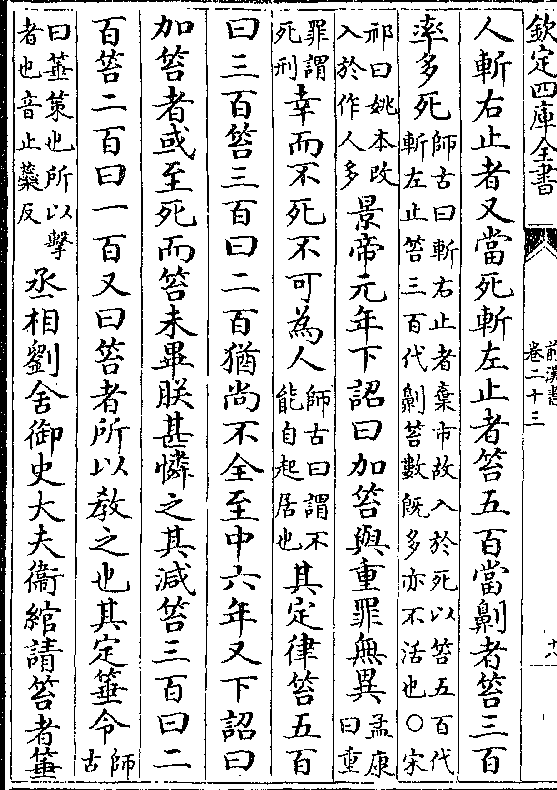 欽定四庫全書
前漢書
卷二十三
人斬右止者又當死斬左止者笞五百當劓者笞三百
率多死師古曰斬右止者棄市故入於死以笞五百代斬左止笞三百代劓笞數既多亦不活也○宋
祁曰姚本改入於作人多景帝元年下詔曰加笞與重罪無異孟康曰重
罪謂死刑幸而不死不可為人師古曰謂不能自起居也其定律笞五百
曰三百笞三百曰二百猶尚不全至中六年又下詔曰
加笞者或至死而笞未畢朕甚憐之其減笞三百曰二
百笞二百曰一百又曰笞者所以教之也其定箠令師古
曰箠策也所以擊者也音止蘂反丞相劉舍御史大夫衞綰請笞者箠